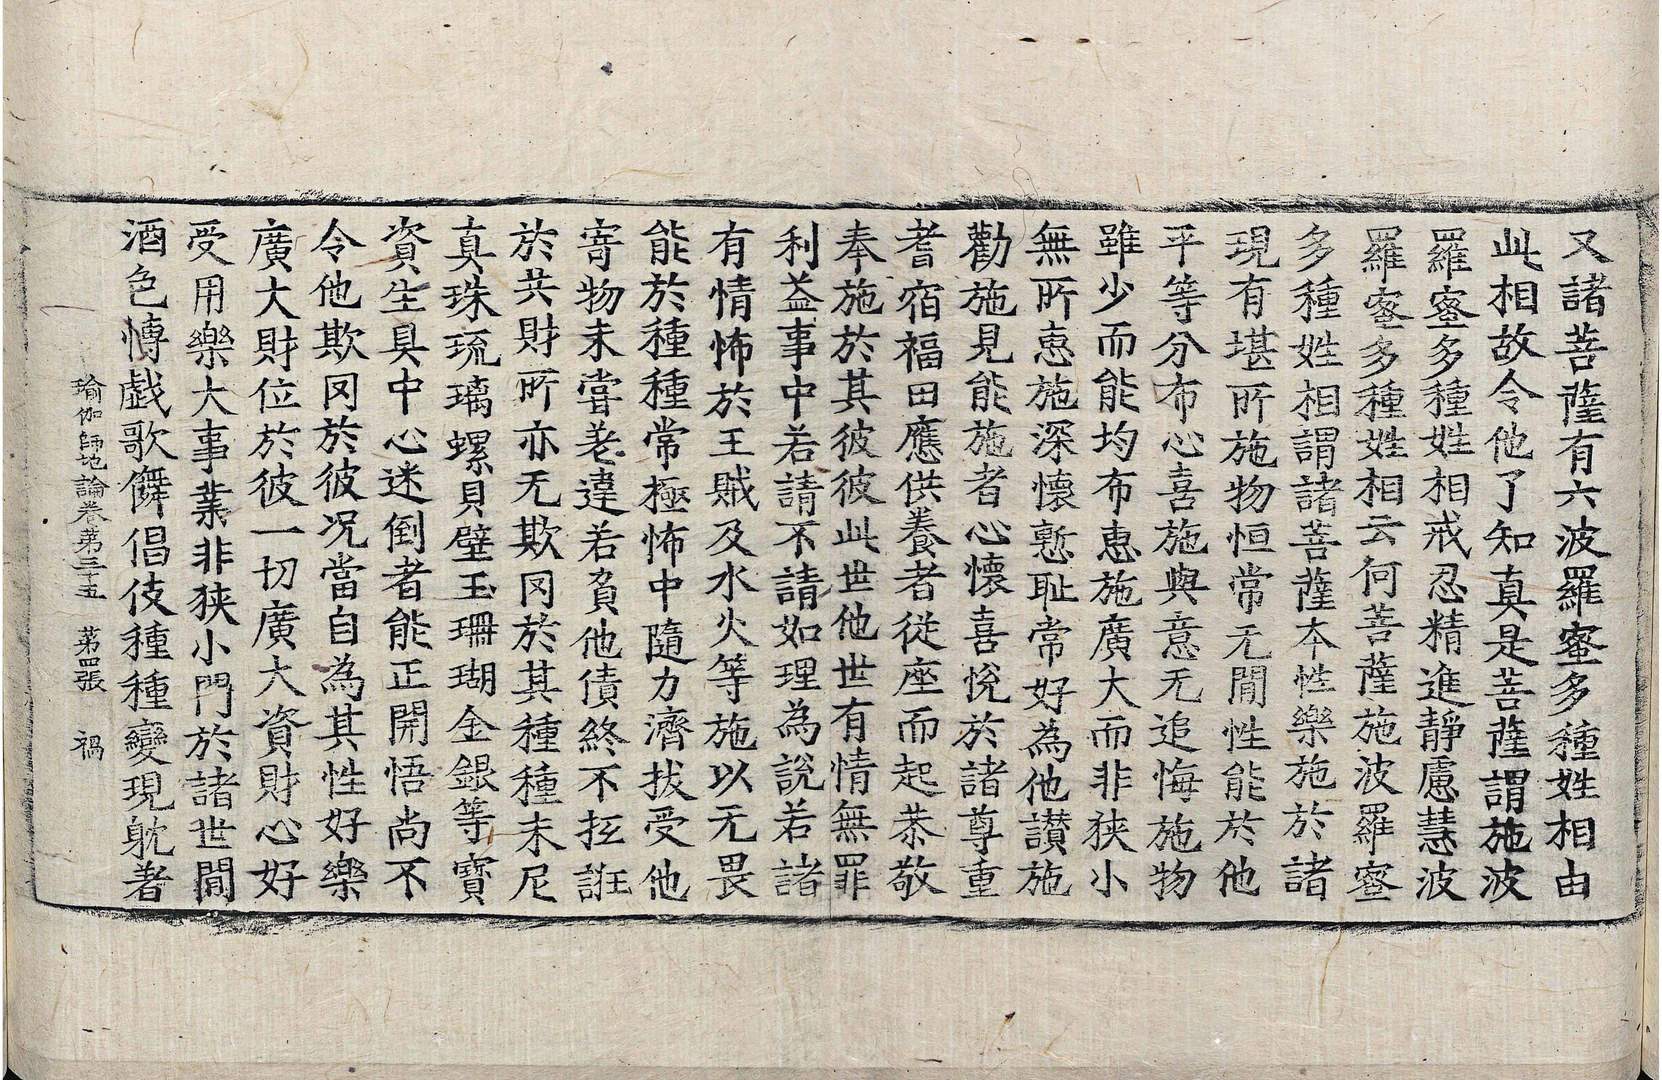 又諸菩薩有六波羅蜜多種姓相由
此相故令他了知真是菩薩謂施波
羅蜜多種姓相戒忍精進靜慮慧波
羅蜜多種姓相云何菩薩施波羅蜜
多種姓相謂諸菩薩本性樂施於諸
現有堪所施物恒常无閒性能於他
平等分布心喜施與意无追悔施物
雖少而能均布惠施廣大而非狹小
無所惠施深懷慙耻常好為他讃施
勸施見能施者心懷喜悅於諸尊重
耆宿福田應供養者從座而起恭敬
奉施於其彼彼此世他世有情無罪
利益事中若請不請如理為說若諸
有情怖於王賊及水火等施以无畏
能於種種常極怖中隨力濟拔受他
寄物未甞差違若負他債終不抂誑
於共財所亦无欺罔於其種種末尼
真珠琉璃螺貝璧玉珊瑚金銀等寶
資生具中心迷倒者能正開悟尚不
令他欺罔於彼况當自為其性好樂
廣大財位於彼一切廣大資財心好
受用樂大事業非狹小門於諸世閒
酒色愽戯歌儛倡伎種種變現躭著
瑜伽師地論卷苐三十五 苐四張 禍